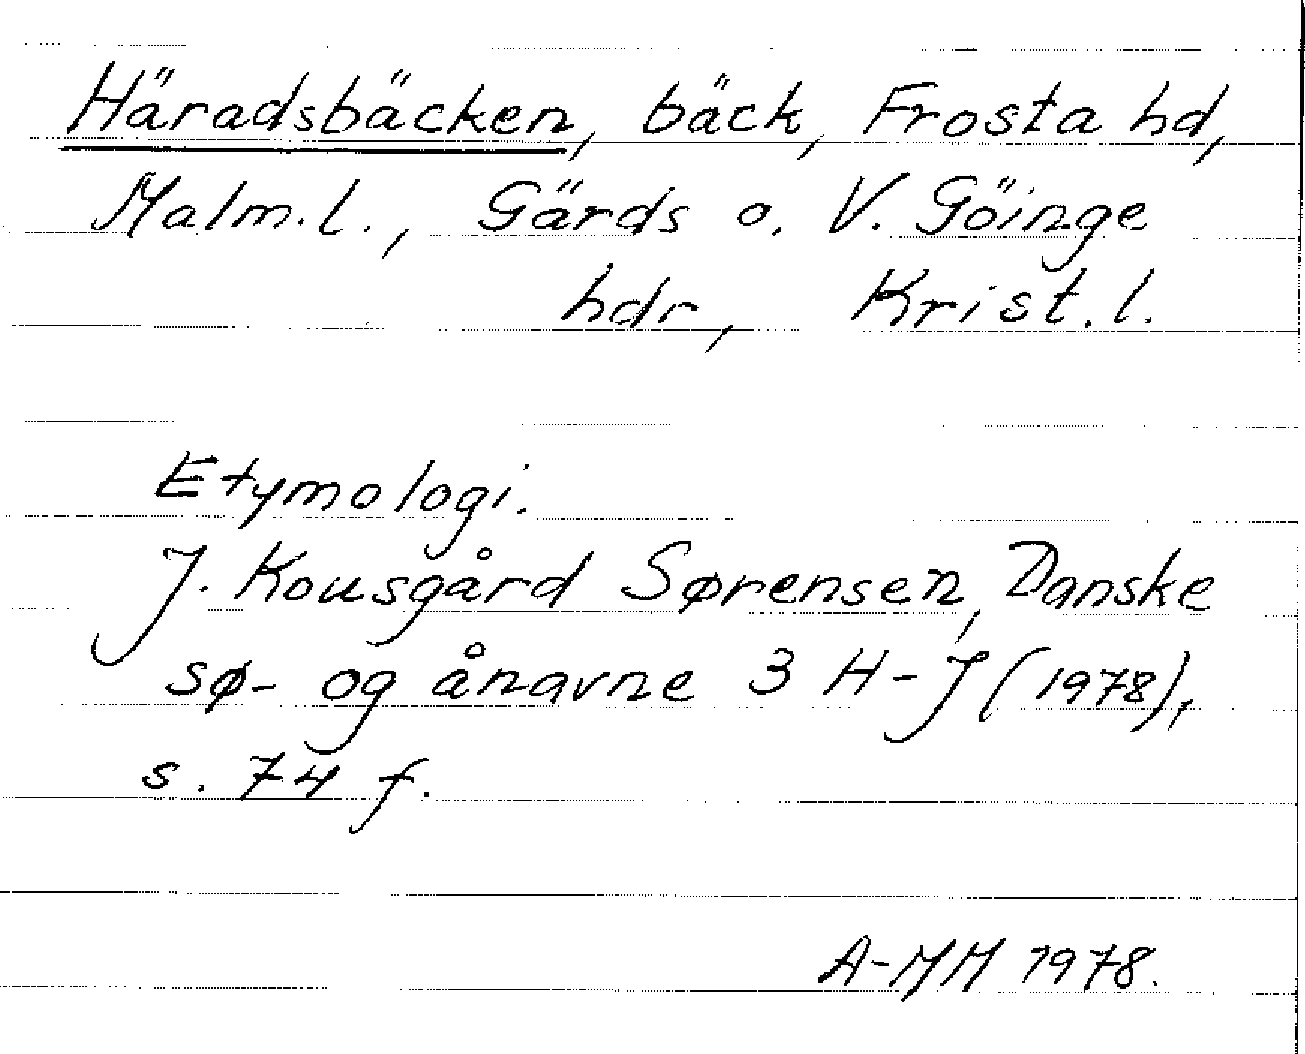 Häradsbäcken, bäck, Frosta hd,
Malm.l., Gärds o. V. Göinge
hdr, Krist.l.
Etymologi.
J. Kousgård Sørensen, Danske
sø- og ånavne 3 H-J (1978),
s. 74 f.
A-MM 1978.